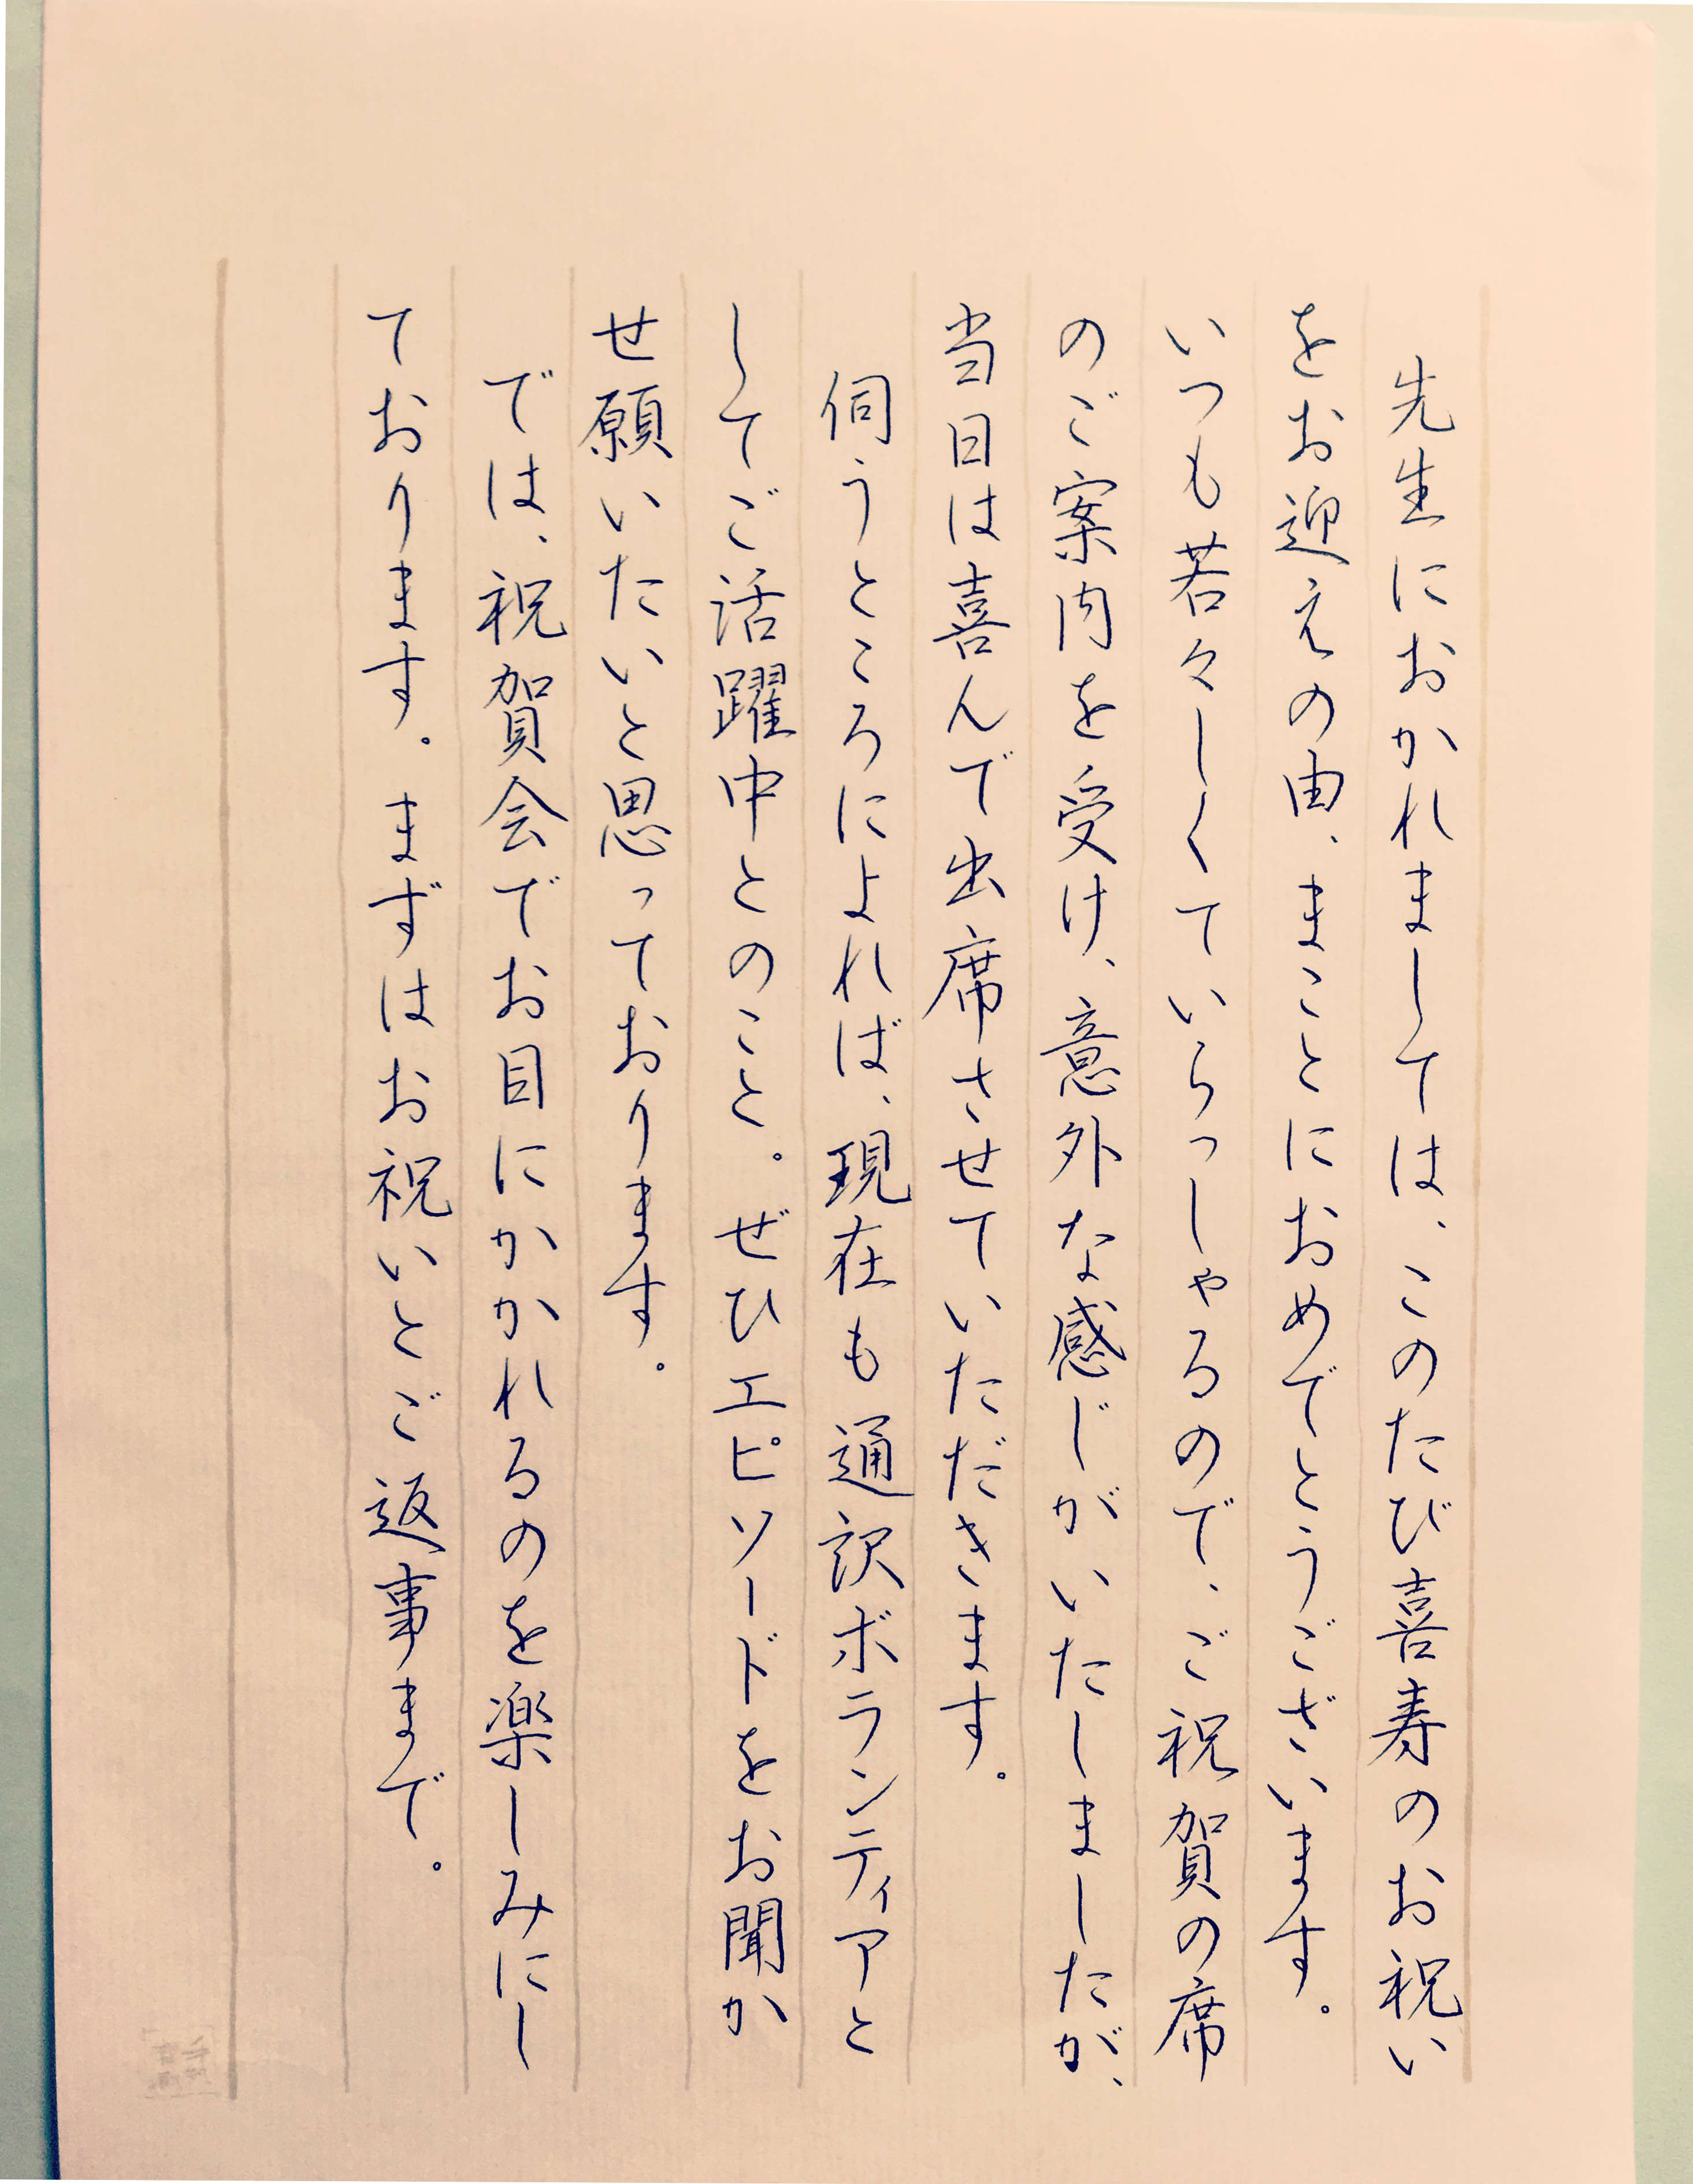 先生におかれましては、このたび喜寿のお祝い
をお迎えの由、まことにおめでとうございます。
いつも若々しくていらっしゃるので、ご祝賀の席
のご案内を受け、意外な感じがいたしましたが、
当日は喜んで出席させていただきます。
伺うところによれば、現在も通訳ボランティアと
してご活躍中とのこと。ぜひエピソードをお聞か
せ願いたいと思っております。
では、祝賀会でお目にかかれるのを楽しみにし
ております。まずはお祝いとご返事まで。